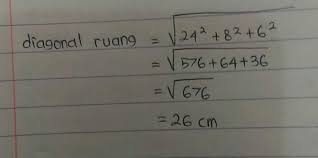 diagonal ruang = √24² + 8² + 6²
= √576 + 64 + 36
= √676
= 26 cm